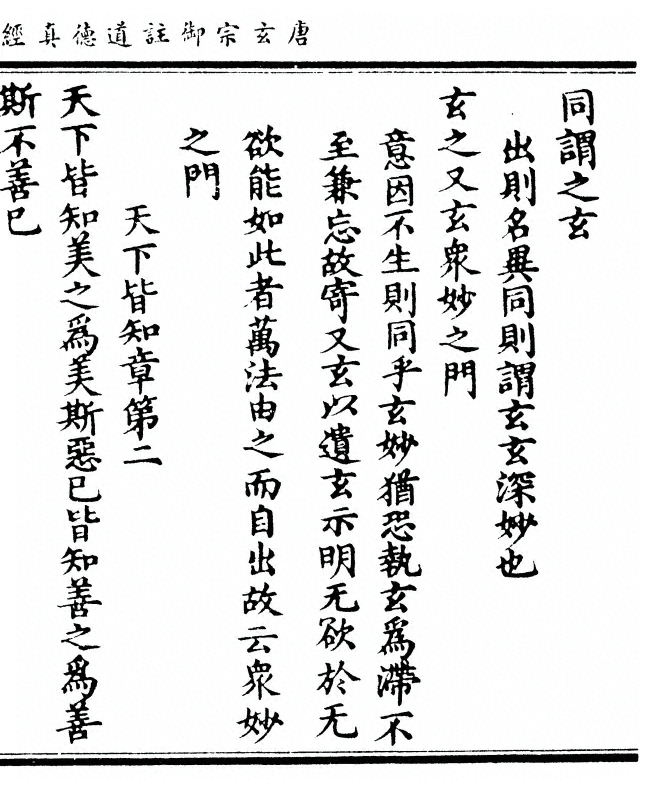 唐玄宗御註道德真經
同謂之玄
出則名異同則謂玄玄深妙也
玄之又玄衆妙之門
意因不生則同乎玄妙猶恐執玄爲滯不
至兼忘故寄又玄以遺玄示明无欲於无
欲能如此者萬法由之而自出故云衆妙
之門
天下皆知章第二
天下皆知美之爲美斯惡已皆知善之爲善
斯不善已